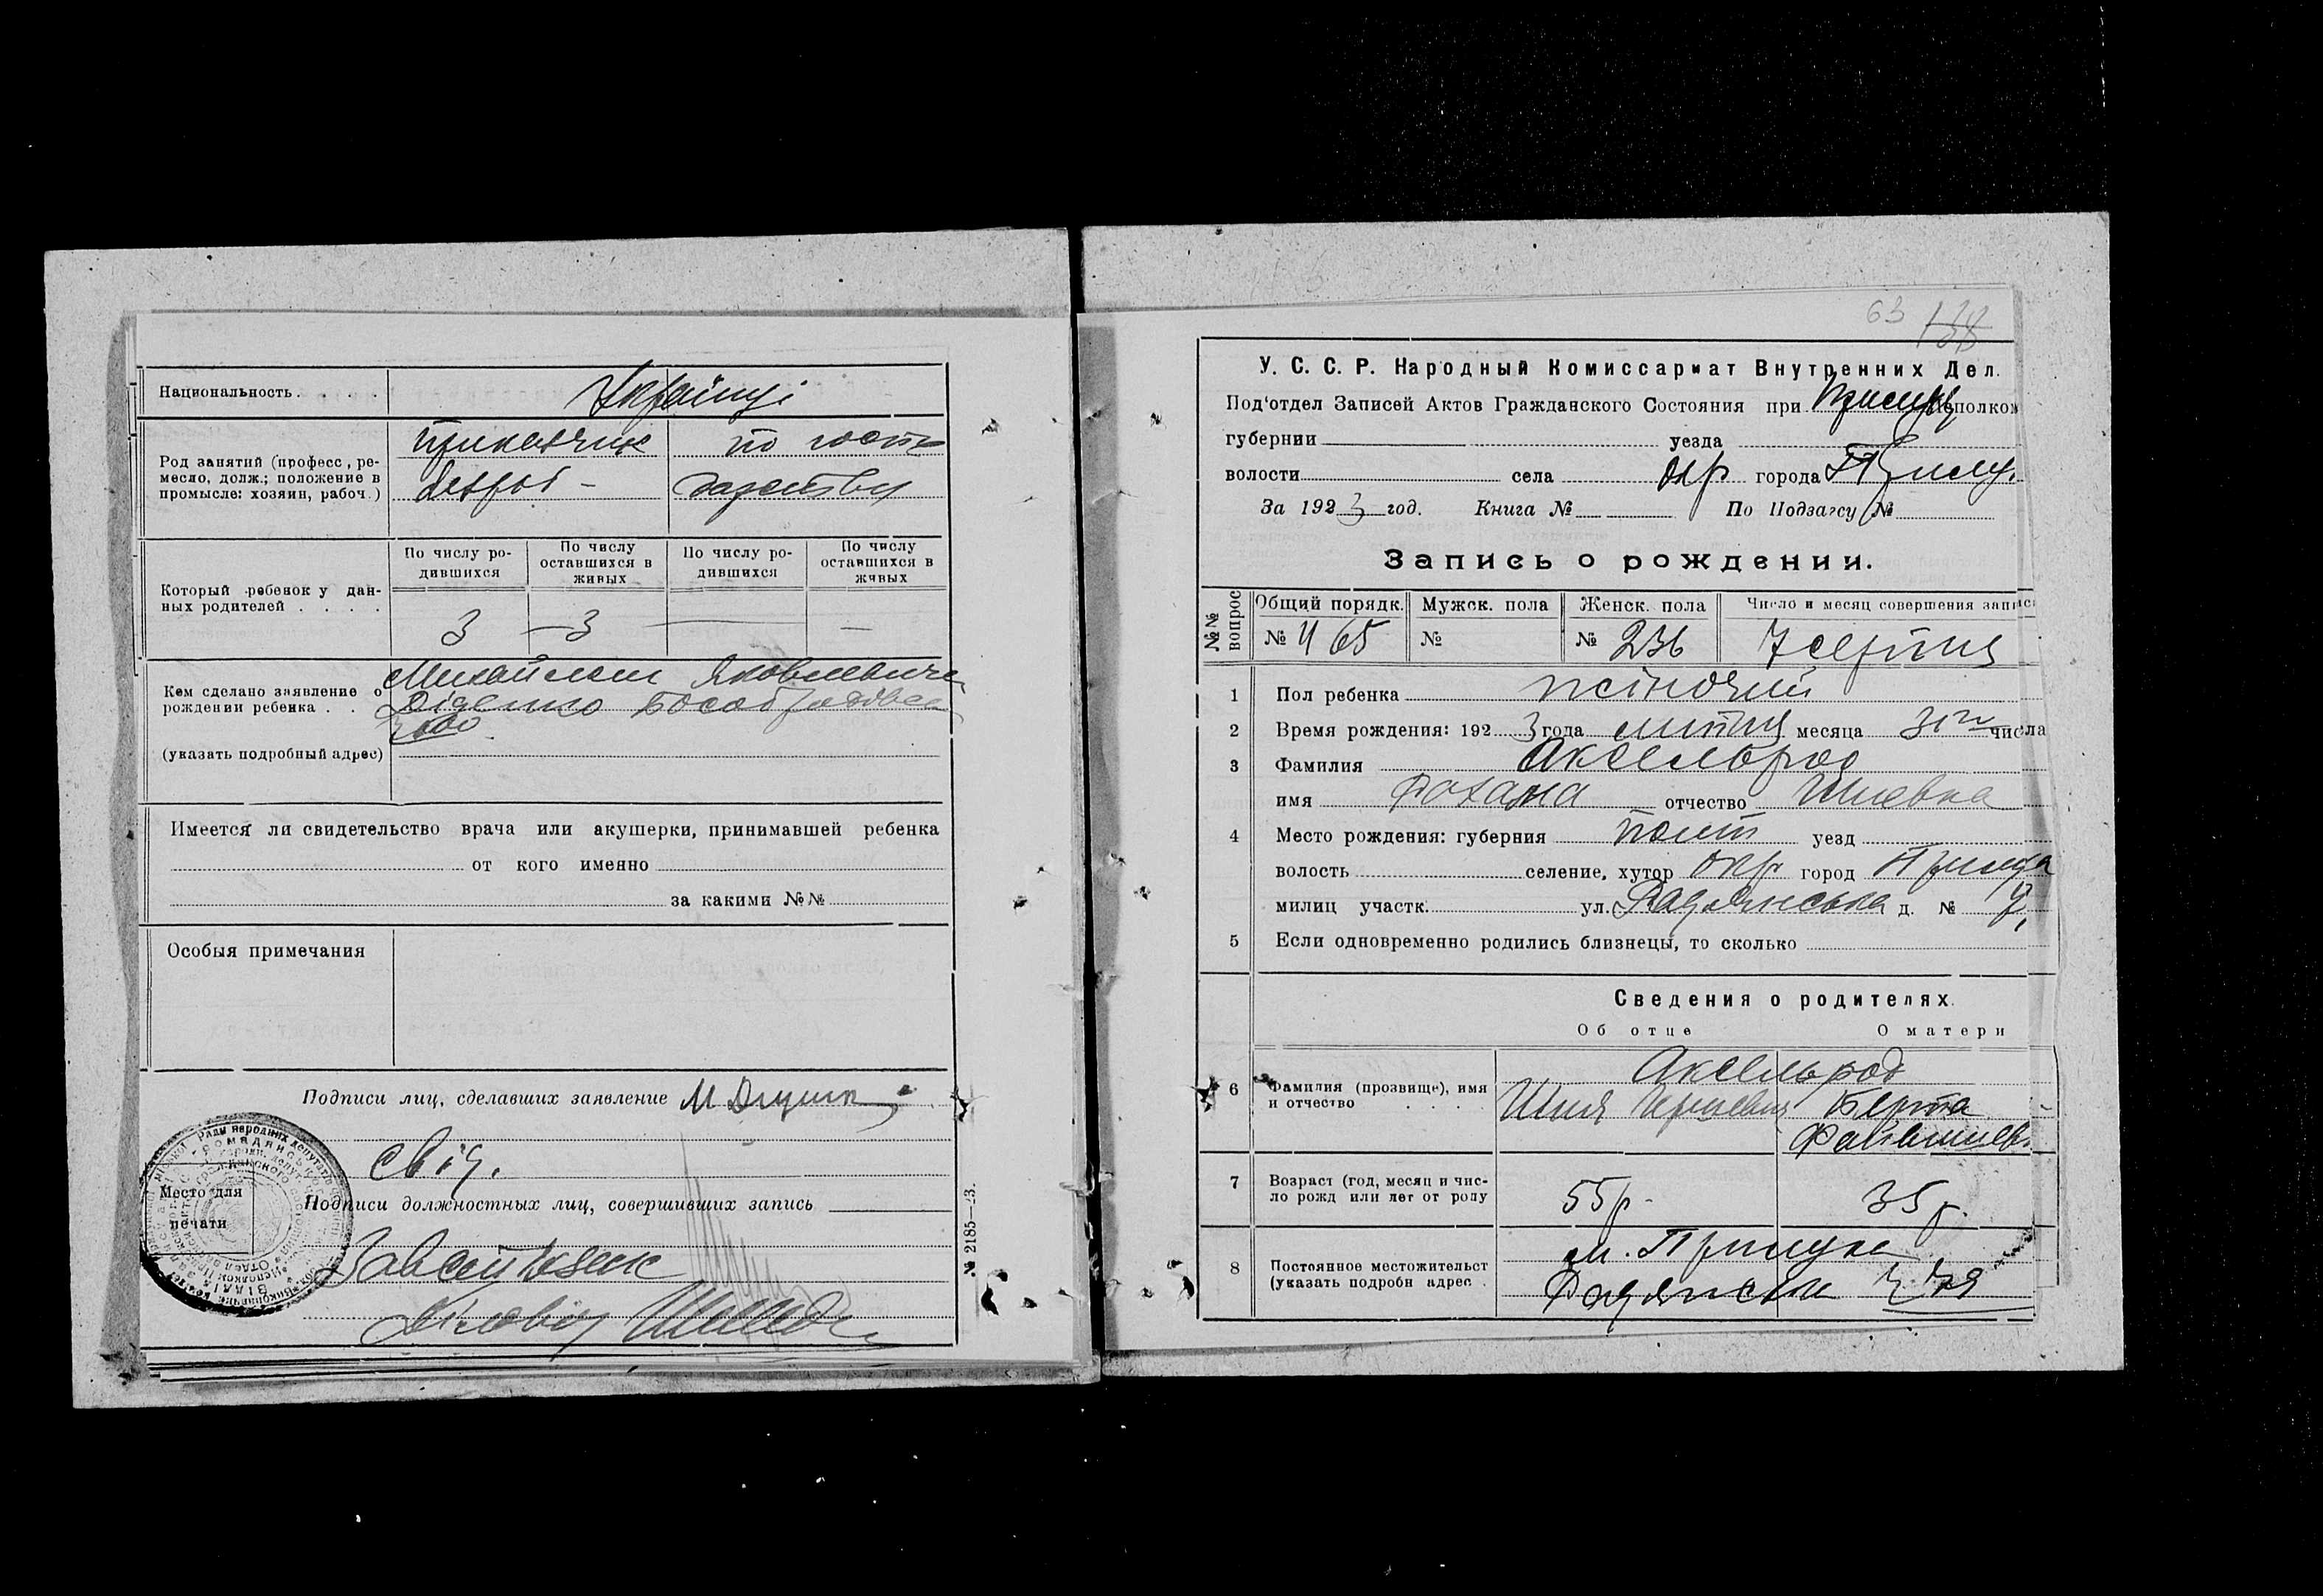 Национальность . . . . Українці
Род занятий (професс, ре-
месло, долж.; положение в
промысле: хозяин, рабоч.)
приказчик по госпо
дарству
Который ребенок у дан-
ных родителей . . . .
По числу ро-
дившихся
По числу
оставшихся в
живых
По числу ро-
дившихся
По числу
оставшихся в
живых
3 — 3 —
Кем сделано заявление о
рождении ребенка . .
(указать подробный адрес)
Михайлом Яковлевичем
Діденко
Имеется ли свидетельство врача или акушерки, принимавшей ребенка
от кого именно
за какими №№
Особыя примечания
Подписи лиц, сделавших заявление М
свід.
Место для
печати
Подписи должностных лиц, совершивших запись
Діловод
№ 2185—23.
63 138
У. С. С. Р. Народный Комиссариат Внутренних Дел.
Под'отдел Записей Актов Гражданского Состояния при Прилуц Исполком
губернии уезда
волости села окр города Прилу.
За 1923 год. Книга № По Подзагсу №
Запись о рождении.
№№
вопрос
Общий порядк. Мужск. пола Женск. пола Число и месяц совершения записи
№ 465 № № 236 7 серпня
1 Пол ребенка жіночий
2 Время рождения: 1923 года липня месяца 31го числа
3 Фамилия Аксельрод
имя отчество Шиевна
4 Место рождения: губерния Полт уезд
волость селение, хутор окр город Прилука
милиц участк. ул. Радянська д. №
5 Если одновременно родились близнецы, то сколько
Сведения о родителях.
Об отце О матери
6 Фамилия (прозвище), имя
и отчество . . . .
Аксельрод
Шия Гершевич Берта
7 Возраст (год, месяц и чис-
ло рожд или лет от роду
55р. 35р.
8 Постоянное местожительст
(указать подробн адрес .
м. Прилука
Радянська ч. 79